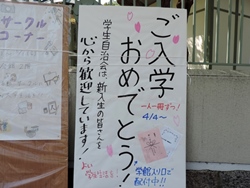 サークル
コーナー
ご入学
おめでとう!
一人一冊ずつ!
4/4〜
学生自治会は、新入生の皆さんを
心から歓迎しています!
学館入り口で
配付中!!